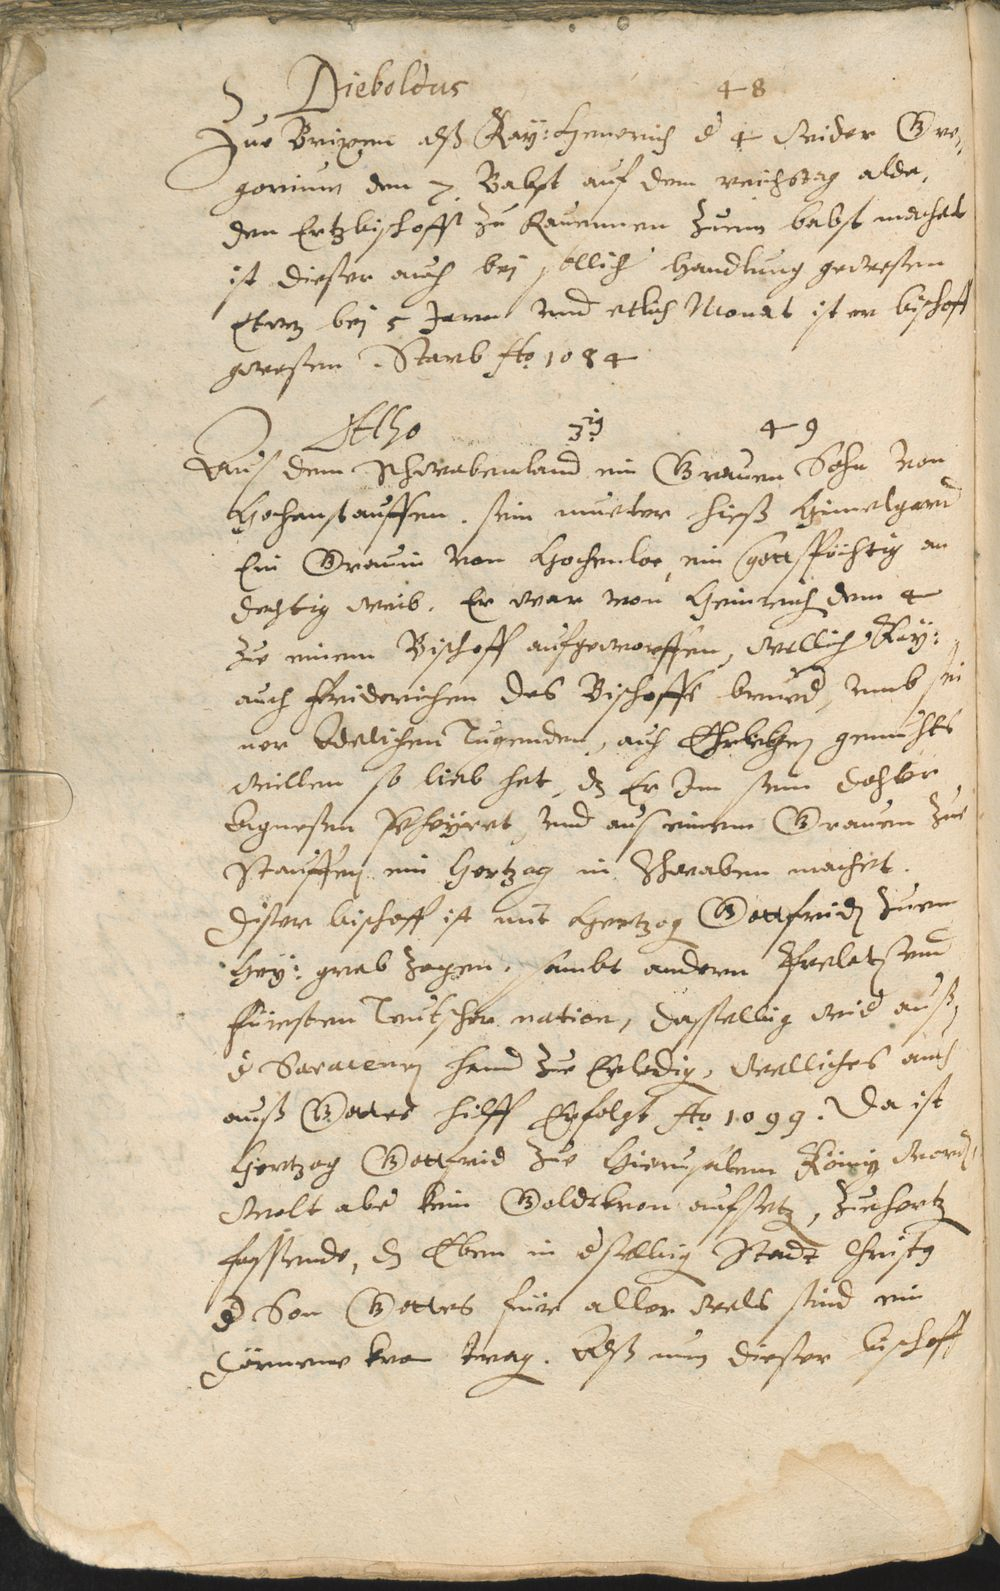 Dieboldus 48
Zue Brixen alß Kay: Henerich d 4 wider Gre-
gorium den 7. Babst auf dem reichstag alda,
den Ertzbischoff zu Rauennen zum babst machet
ist dieser auch bei sollich handlung gewesen
bei 5 Jaren vnd etlich Monat ist er bischoff
gewesen. Starb Ao 1084
Otho 49
Aus dem Schwabenland ein Grauen Sohn von
Hochenstauffen. sein mueter hieß Himelgard
Ein Grauin von Hochenloe, ein gottsförchtig an
dechtig weib. Er war von Heinrich dem 4
zue einem Bischoff aufgeworffen, wellich Kay:
auch Friderichen des Bischoffs brued, vmb sei
ner Adelichen Tugenden, auch gemüehts
willen so lieb het, dz Er Im sein dohter
Agnesen vnd aus einem Grauen zue
Stauffen ein Hertzog in Schwaben machet.
Diser bischoff ist mit Hertzog Gottfrid zum
Hey: grab zogen, sambt andern Prelaten vnd
Fürsten Teutscher nation, dasselbig wid auß
d Saracenen hand zue Erledig, welliches auch
auß Gottes hilff Erfolgt Ao 1099. Da ist
Hertzog Gottfrid zue Hierusalem König word,
Wolt abe kein Goldtkron aufsetz, zuehertz
fassende, dz Eben in dselbig Stadt Christus
d Son Gottes für aller welt sünd ein
Dörnene kron trag. Alß nun dieser bischoff